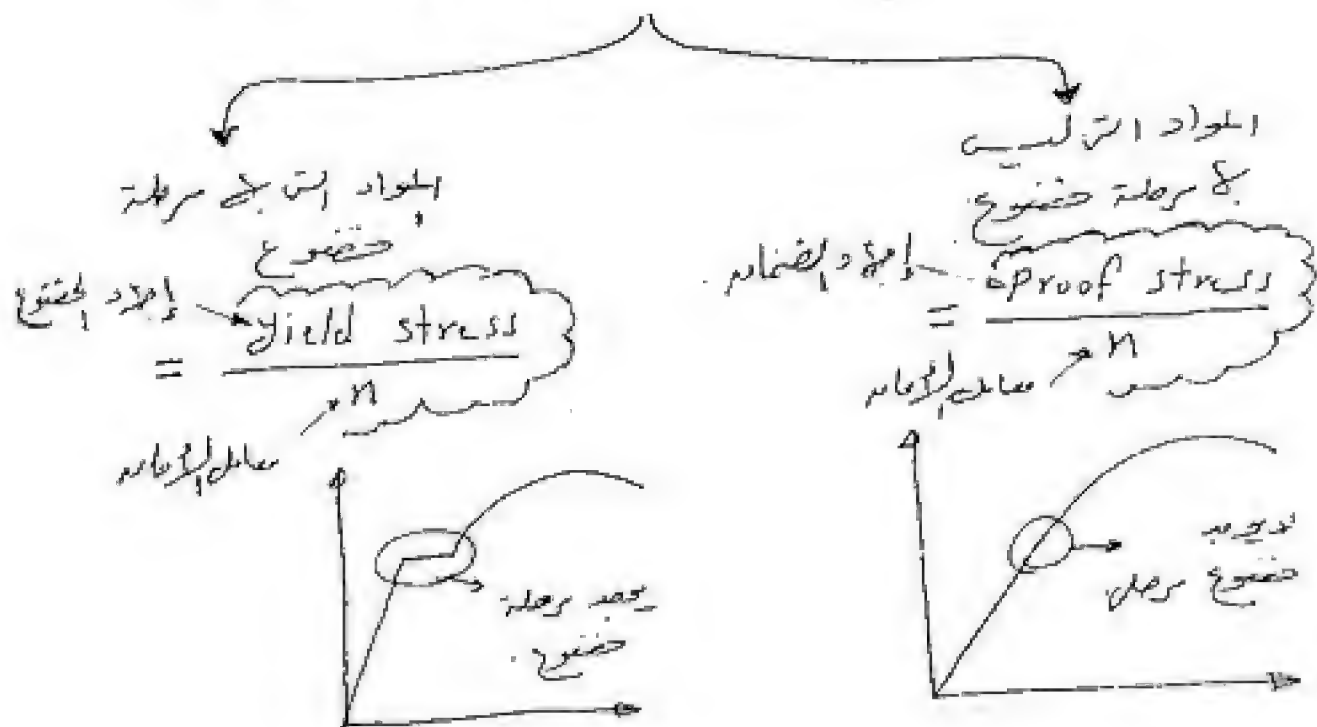 المواد التي لها مرحلة
خضوع
إجهاد الخضوع
yield stress
=
n
معامل الأمان
يوجد مرحلة
خضوع.
المواد التي ليس
لها مرحلة خضوع
إجهاد الضمان
proof stress
=
n
معامل الأمان
لا يوجد
خضوع مرحلة